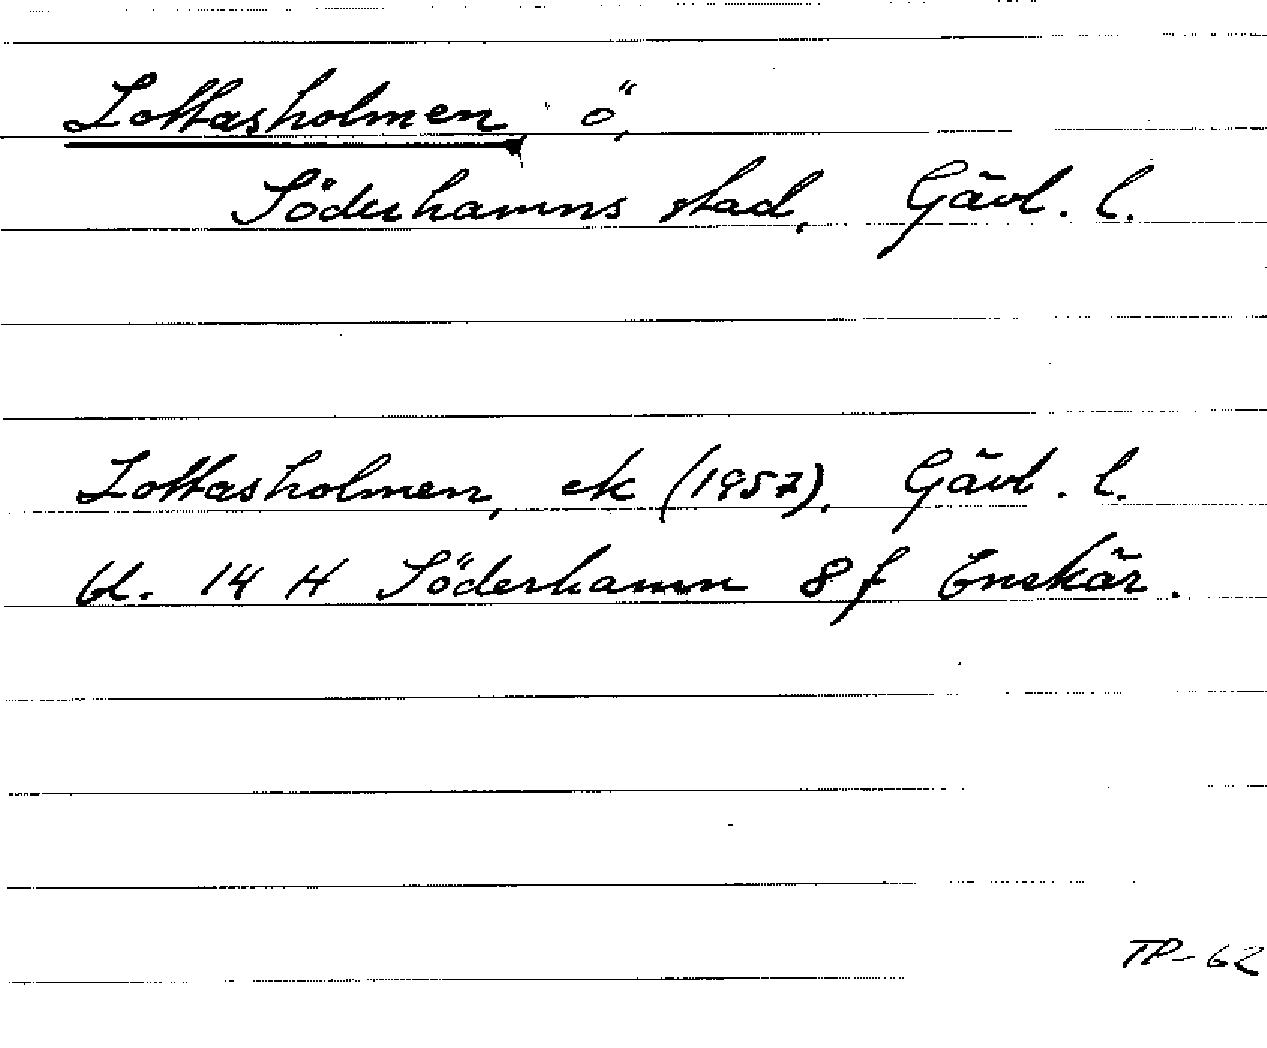 Lottasholmen, ö,
Söderhamns stad, Gävl. l.
Lottasholmen, ek (1957). Gävl. l.
bl. 14 H Söderhamn 8 f Enskär.
TP-62